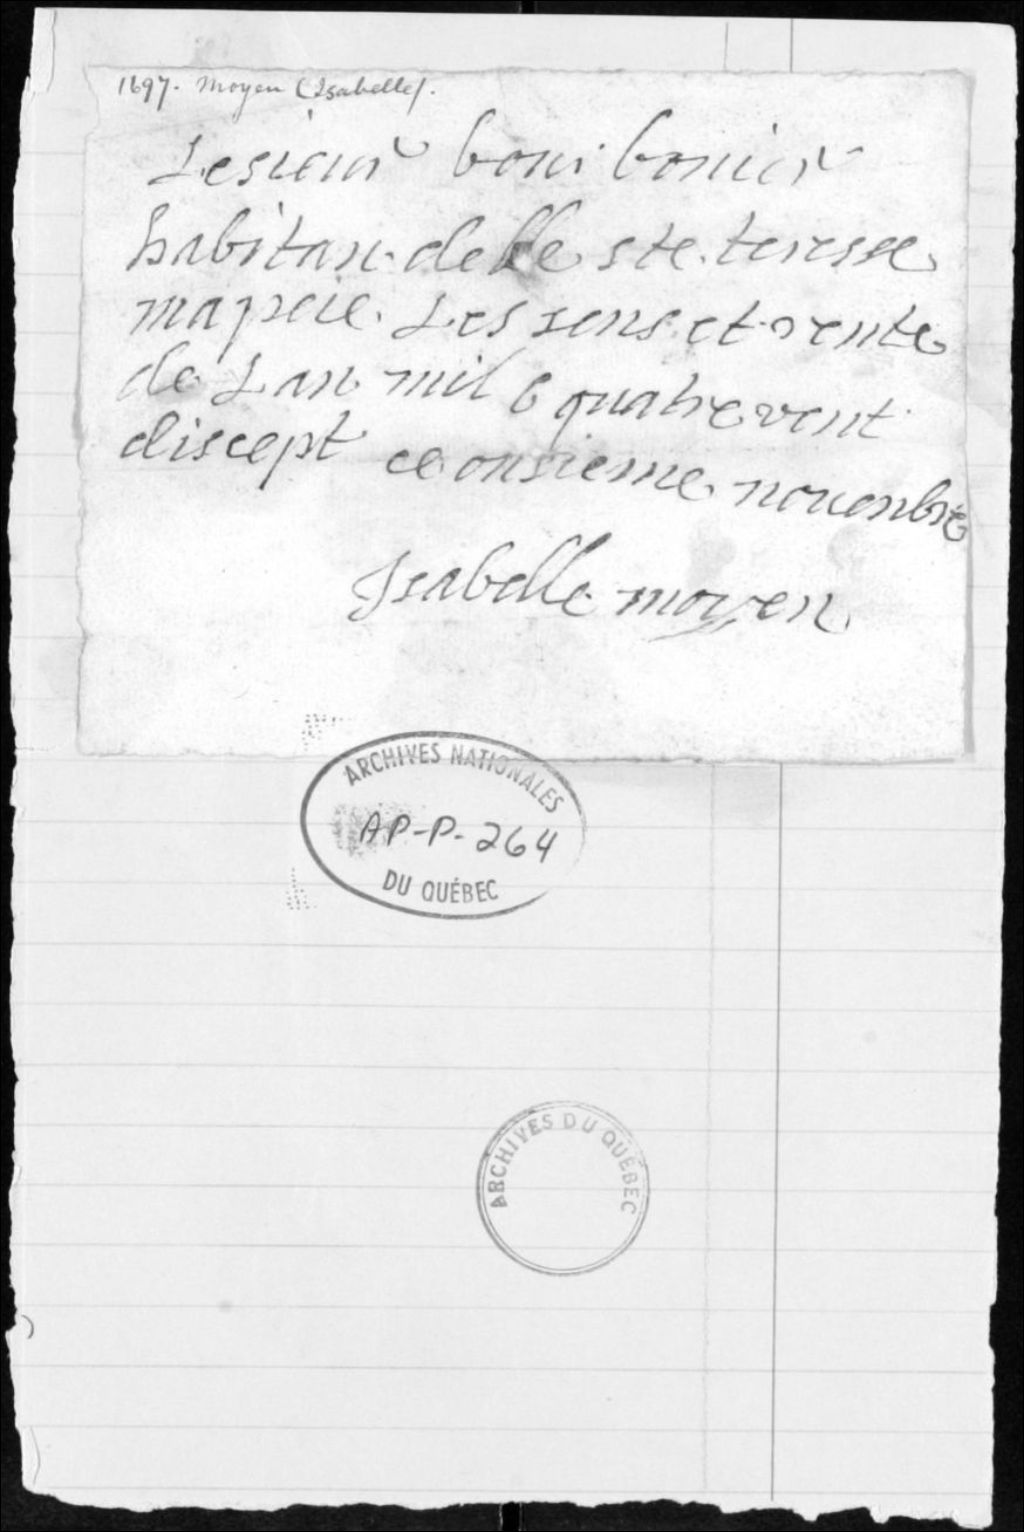 1697. Moyen (Isabelle).
Lesieur bourbonier
habitan de lle ste teresse
ma peié Les sens et rente
de Lan mil 6 quatrevent
discept ce onsieme novenbre
Isabelle moyen
ARCHIVES NATIONALES
AP-P-264
DU QUÉBEC
ARCHIVES DU QUÉBEC